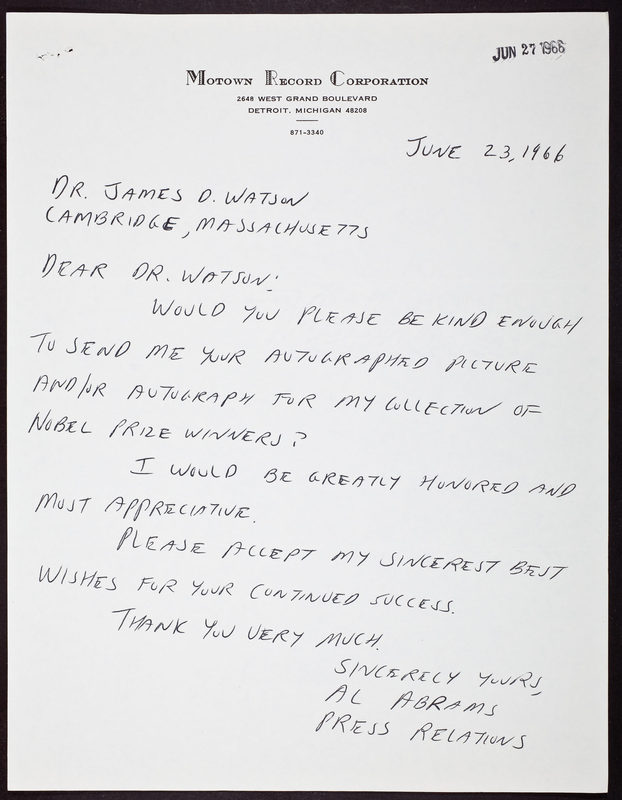 JUN 27 1966
MOTOWN RECORD CORPORATION
2648 WEST GRAND BOULEVARD
DETROIT, MICHIGAN 48208
871-3340
JUNE 23, 1966
DR. JAMES D. WATSON
CAMBRIDGE, MASSACHUSETTS
DEAR DR. WATSON:
WOULD YOU PLEASE BE KIND ENOUGH
TO SEND ME YOUR AUTOGRAPHED PICTURE
AND/OR AUTOGRAPH FOR MY COLLECTION OF
NOBEL PRIZE WINNERS?
I WOULD BE GREATLY HONORED AND
MOST APPRECIATIVE.
PLEASE ACCEPT MY SINCEREST BEST
WISHES FOR YOUR CONTINUED SUCCESS.
THANK YOU VERY MUCH.
SINCERELY YOURS,
AL ABRAMS
PRESS RELATIONS